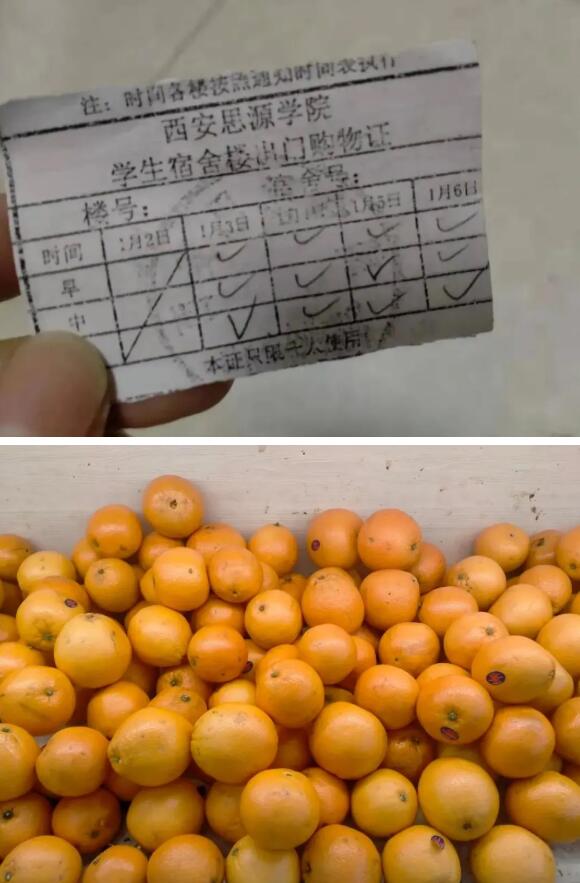 注：时间各楼按照通知时间表试行
西安思源学院
学生宿舍楼出门购物证
楼号： 宿舍号：
时间 1月2日 1月3日 1月4日 1月5日 1月6日
早
中
本证只限一人使用